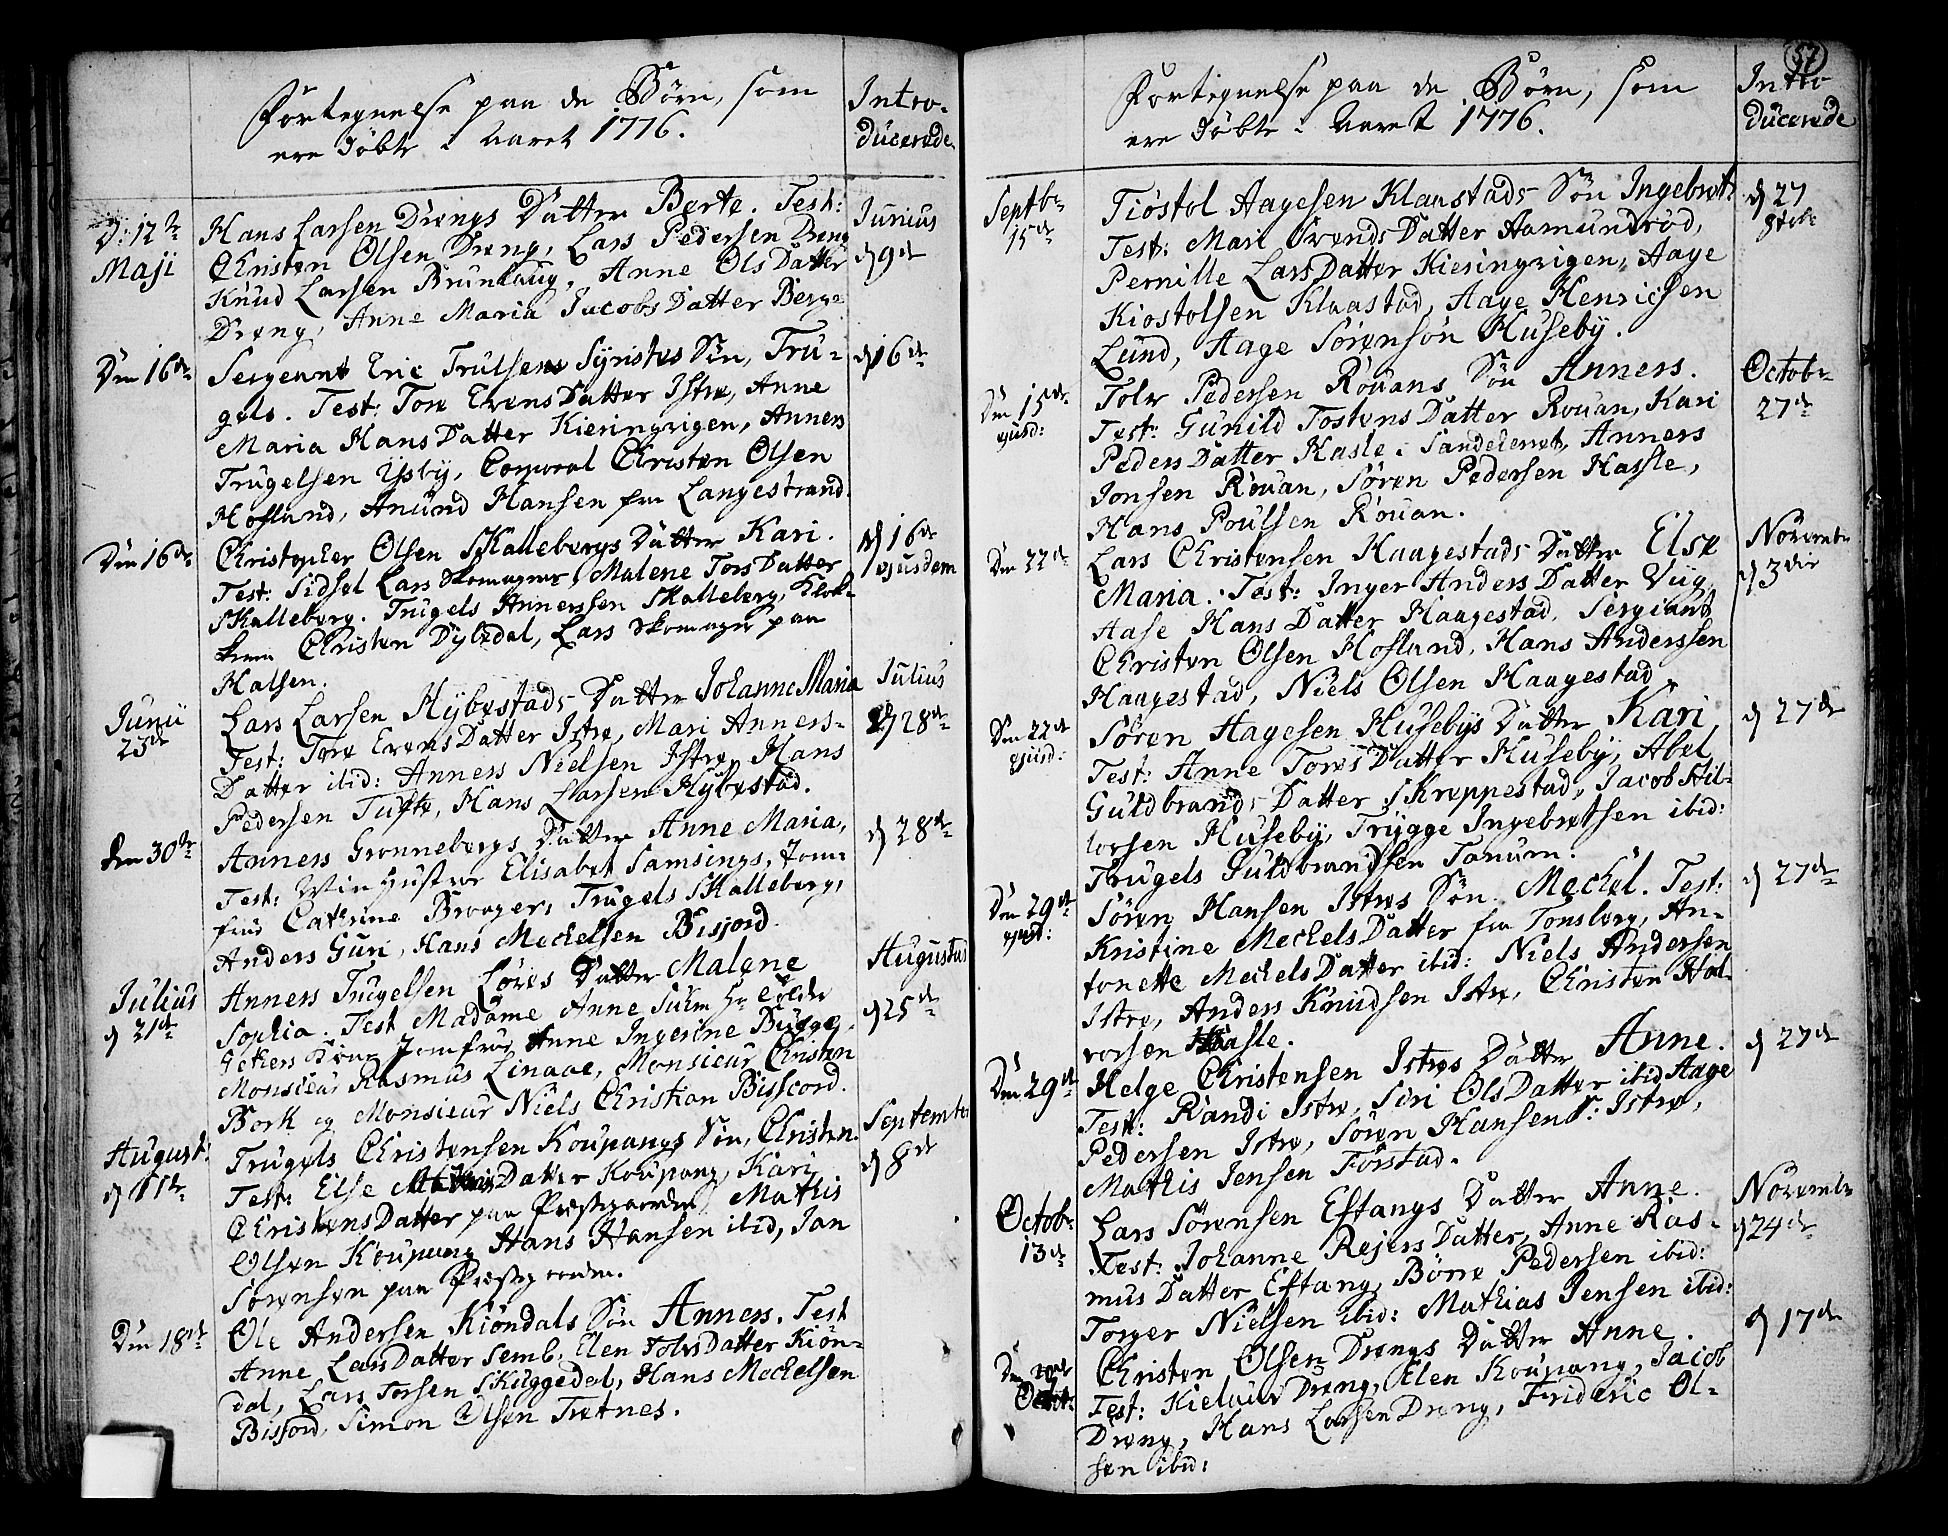 Fortegnelse paa de Børn, som
ere døbte i Aaret 1776.
Intro-
ducerede
D: 12te
Maji
Hans Larsen Drengs Datter Berte. Test:
Christen Olsen Dreng, Lars Pedersen Dreng
Knud Larsen Brunlaug, Anne OlsDatter
Dreng, Anne Maria JacobsDatter Berg-
Junius
d 9de
Den 16de
Sergeant Eric Trulsens Syristes Søn, Tru-
gels. Test: Tore EvensDatter Istre, Anne
Maria HansDatter Kieringvigen, Anners
Trugelsen Ysby, Corporal Christen Olsen
Hofland, Anund Hansen fra Langestrand.
d 16de
Den 16de
Christopher Olsen Skallebergs Datter Kari.
Test: Sidsel Lars Skomagers, Malene TorsDatter
Skalleberg. Trugels Annerssen Skalleberg, Klok-
keren Christen Dybedal, Lars Skomager paa
Halsen.
d 16de
ejusdem
Junii
23de
Lars Larsen Hybestads Datter Johanne Maria
Test: Tore EvensDatter Istre, Mari Anners-
Datter ibid: Anners Nielsen Istre, Hans
Pedersen Tufte, Hans Larsen Hybestad.
Julius
d 28de
den 30te
Anners Grønnebergs Datter Anne Maria,
Test: Elisabet Samsings, Jom-
frue Cathrine Trugels Skalleberg,
Anders Guri, Hans Mechelsen Bisjord.
d 28de
Julius
d 21de
Anners Trugelsen Løves Datter Malene
Sophia. Test Madame Anne
Jomfrue Anne Ingerine Bugge
Monsieur Rasmus Linaae, Monsieur Christen
Bork og Monsieur Niels Christian Bisscord.
Augustus
d 25de
August:
d 11te
Trugels Christensen Koupangs Søn, Christen.
Test: Else Datter Koupang, Kari
ChristensDatter paa Præstegaarden, Mathis
Olsen Koupang Hans Hansen ibid, Jan
Sørensen paa Præstegaarden.
Septembr
d 8de
Den 18de
Ole Andersen Kiøndals Søn Anners. Test
Anne LarsDatter Semb, Elen TolesDatter Kiøn-
dal, Lars Torsen Skuggedal, Hans Mechelsen
Bisjord, Simon Olsen Tretnes.
57
Fortegnelse paa de Børn, som
ere døbte i Aaret 1776.
Intro-
ducerede
Septbr
15de
Tiostol Aagesen Klaastads Søn Ingebret.
Test: Mari SvendsDatter Aamundrød,
Pernille LarsDatter Kieringvigen, Aage
Kiostolsen Klaastad, Aage Henricsen
Lund, Aage Sørensøn Huseby.
d 27
Den 15de
ejusd:
Tolv Pedersen Rouans Søn Anners.
Test: Gunild TostensDatter Rouan, Kari
PedersDatter Hasle i Sandeherret, Anners
Jonsen Rouan, Søren Pedersen Hassle,
Hans Poulsen Rouan.
Octobr
27de
Den 22de
Lars Christensen Haagestads Datter Else
Maria. Test: Inger AndersDatter Viig,
Aase HansDatter Haagestad, Sergiant
Christen Olsen Hofland, Hans Anderssen
Haagestad, Niels Olsen Haagestad.
Novembr
d 3die
Den 22de
ejusd:
Søren Hagesen Husebys Datter Kari,
Test: Anne ToresDatter Huseby, Abel
GuldbrandsDatter Skreppestad, Jacob Hil-
lorsen Huseby, Trygge Ingebretsen ibid:
Trugels Guldbrandsen Tanum.
d 27de
Den 29de
ejusd:
Søren Hansen Istres Søn Mechel. Test:
Kristine MechelsDatter fra Tonsberg, An-
tonette MechelsDatter ibid: Niels Andersen
Istre, Anders Knudsen Istre, Christen Hal-
vorsen Hasle.
d 27de
Den 29de
Helge Christensen Istres Datter Anne.
Test: Randi Istre, Siri OlsDatter ibid, Aage
Pedersen Istre, Søren Hansen S: Istre,
Mathis Jensen Førstad.
d 27de
Octobr
13de
Lars Sørensen Eftangs Datter Anne.
Test: Johanne RejersDatter, Anne Ras-
mus Datter Eftang, Børre Pedersen ibid:
Torger Nielsen ibid: Mathias Jensen ibid:
Novembr
d 24de
Den
Christen Olsen Drengs Datter Anne.
Test: Dreng, Elen Koupang, Jacob
Dreng, Hans Larsen Dreng, Frideric Ol-
sen ibid:
d 17de